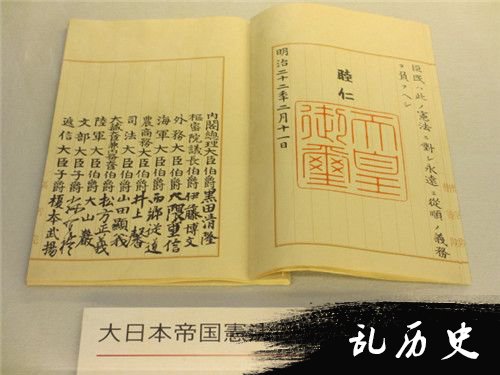 現民ハ此ノ憲法ニ對シ永遠ニ從順ノ義務
ヲ負フヘシ
睦仁
天皇御璽
明治二十二年二月十一日
内閣總理大臣伯爵黒田清隆
樞密院議長伯爵伊藤博文
外務大臣伯爵大隈重信
海軍大臣伯爵西郷從道
農商務大臣伯爵井上馨
司法大臣伯爵山田顯義
大藏大臣兼内務大臣伯爵松方正義
陸軍大臣伯爵大山巖
文部大臣子爵森有禮
遞信大臣子爵榎本武揚
大日本帝国憲法
乱历史